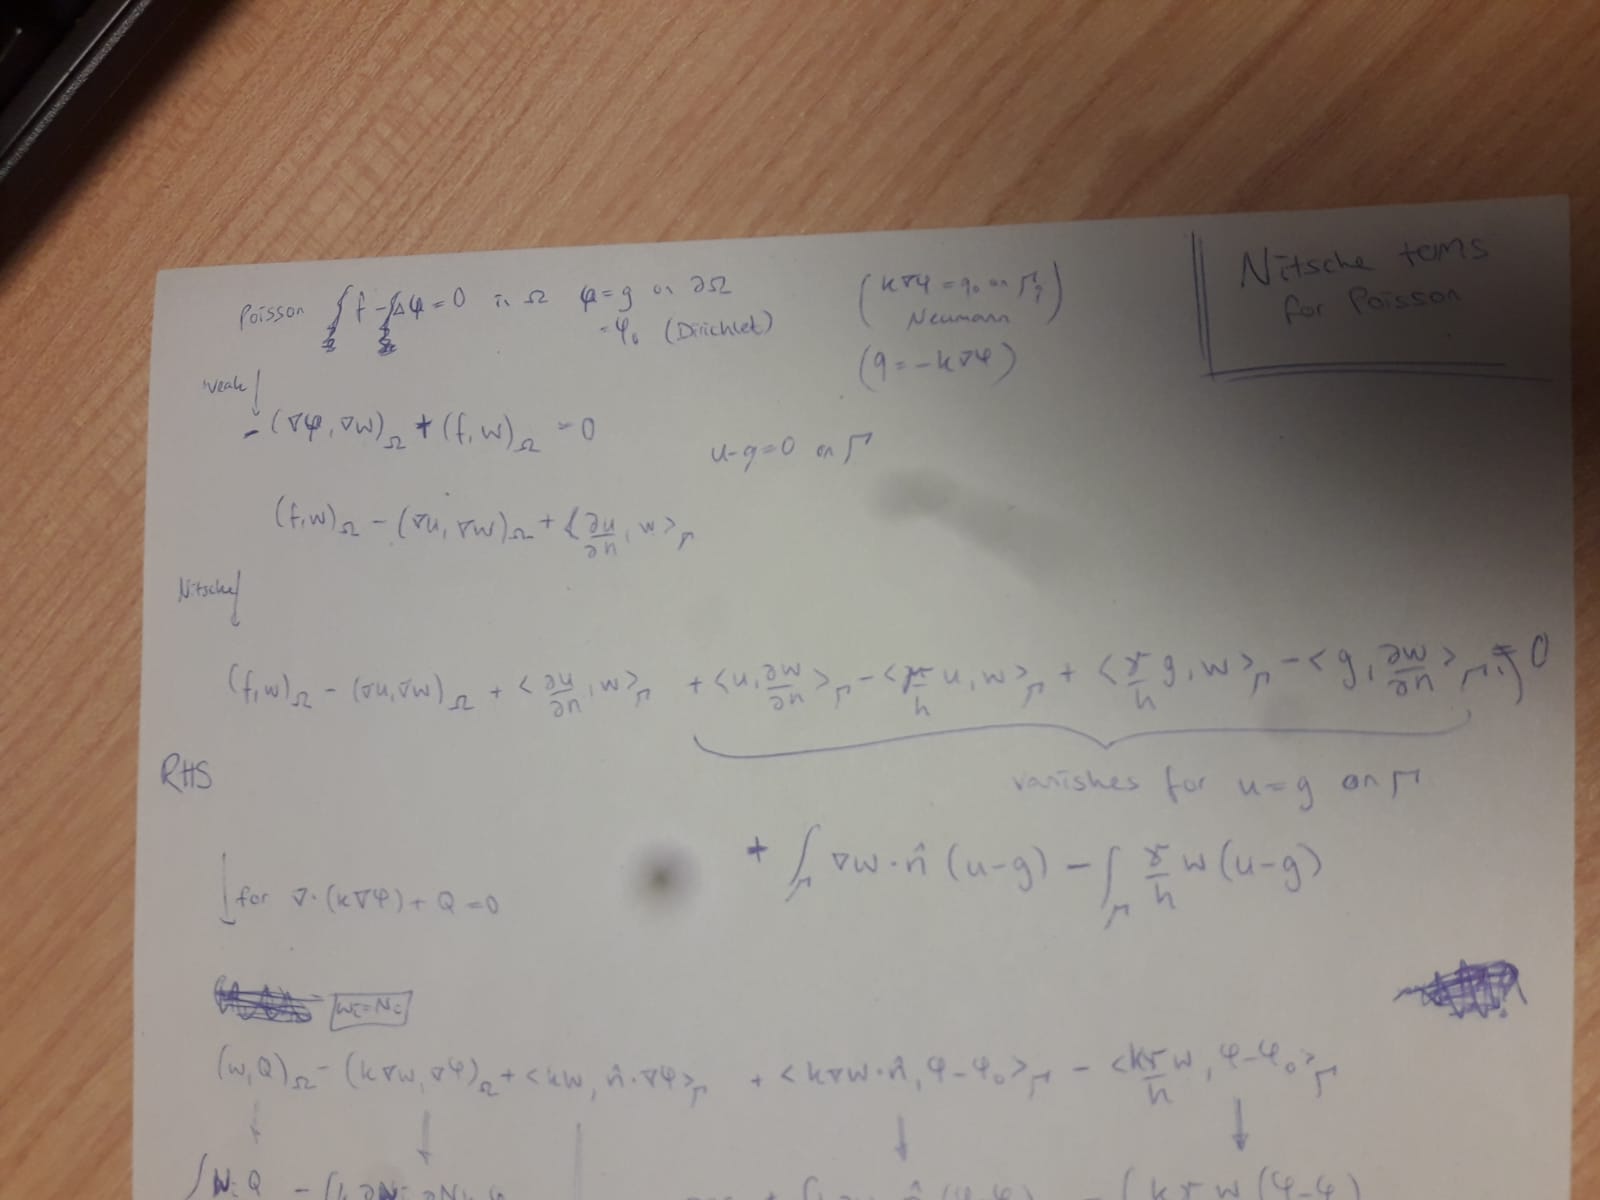 Nitsche terms
for Poisson
Poisson f - Δφ = 0 in Ω φ = g on ∂Ω
= φ₀ (Dirichlet)
(k∇φ = q₀ on Γq)
Neumann
(q = -k∇φ)
weak ↓
-(∇φ, ∇w)_Ω + (f, w)_Ω = 0
u-g=0 on Γ
(f,w)_Ω - (∇u, ∇w)_Ω + <∂u/∂n, w>_Γ
Nitsche ↓
(f,w)_Ω - (∇u,∇w)_Ω + <∂u/∂n, w>_Γ + <u, ∂w/∂n>_Γ - <γ/h u, w>_Γ + <γ/h g, w>_Γ - <g, ∂w/∂n>_Γ = 0
vanishes for u=g on Γ
RHS
+ ∫_Γ ∇w·n̂ (u-g) - ∫_Γ γ/h w (u-g)
↓ for ∇·(k∇φ) + Q = 0
wᵢ=Nᵢ
(w, Q)_Ω - (k∇w, ∇φ)_Ω + <kw, n̂·∇φ>_Γ + <k∇w·n̂, φ-φ₀>_Γ - <kγ/h w, φ-φ₀>_Γ
∫Nᵢ Q